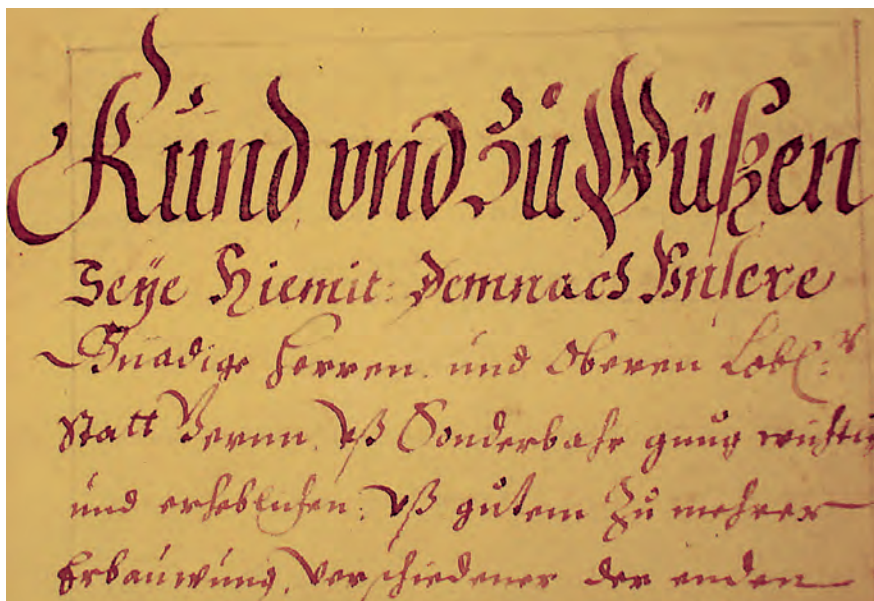 Kund und Zu Wüßen
Seÿe Hiemit: Demnach Unsere
Gnädige Herren und Oberen Lobl:r
Statt Bernn, uß Sonderbahr gnug wichtig
und erheblichen; uß gutem Zu mehrer
Erbauwung, verschiedener der enden